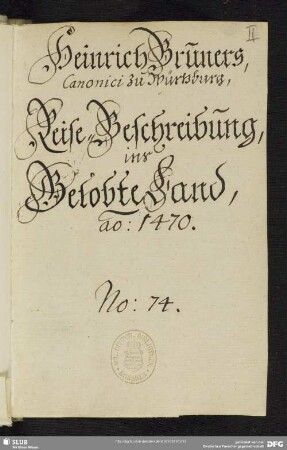 II
Heinrich Brüners,
Canonici zu Würtzburg,
Reise-Beschreibung,
ins
Gelobte Land,
ao: 1470.
No: 74.
SLUB
DFG